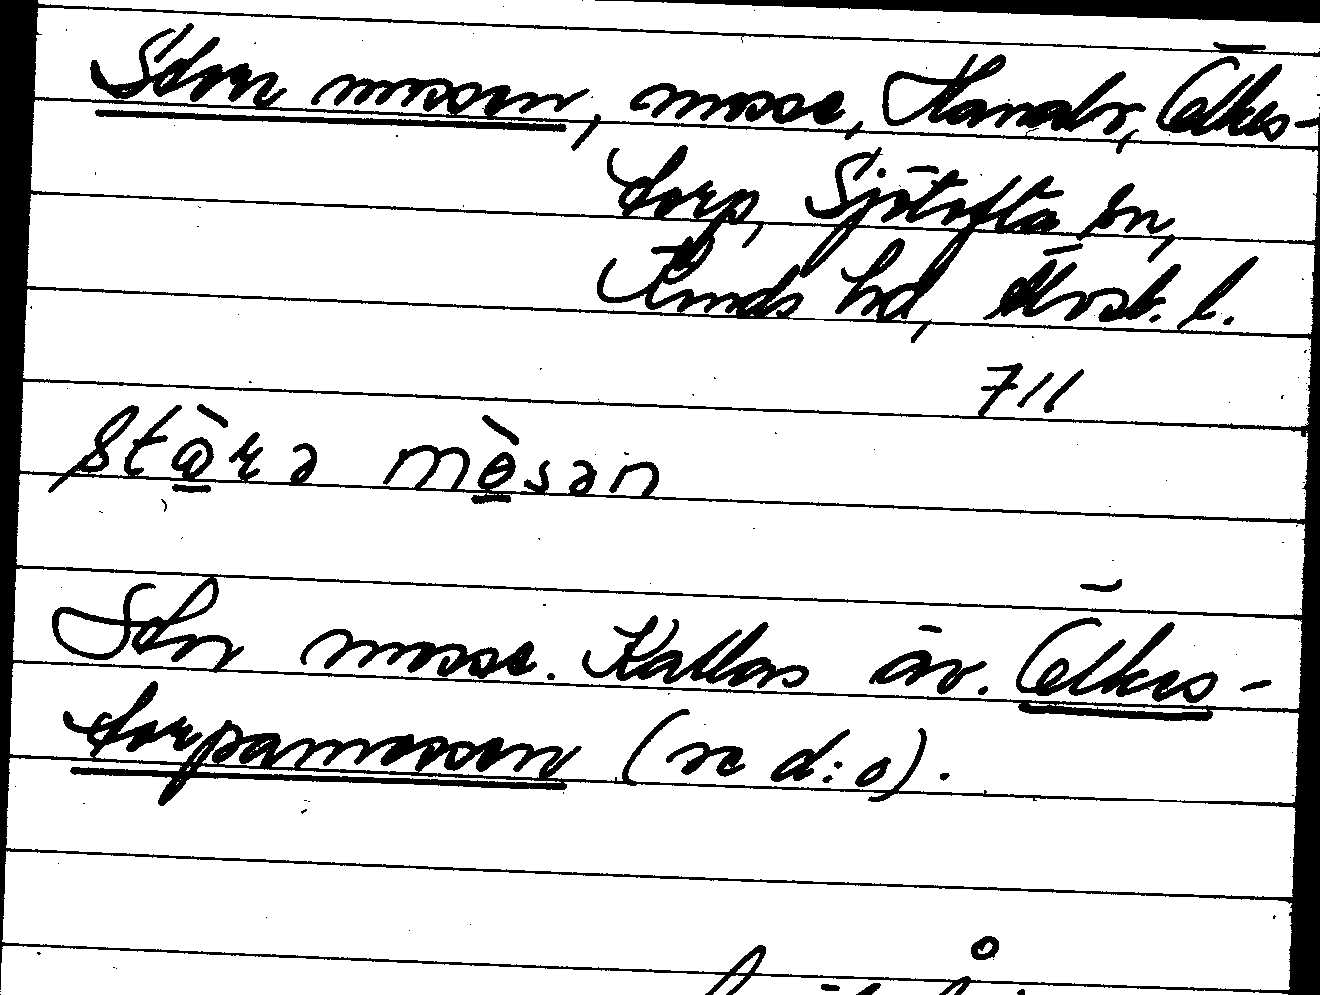 Stora mossen, mosse, Hanabr, Ölkes-
torp, Sjötofta sn,
Kinds hd, Älvsb. l.
711
stòra mòsən
Stor mosse. Kallas äv. Ölkes-
torpamossen (se d:o).